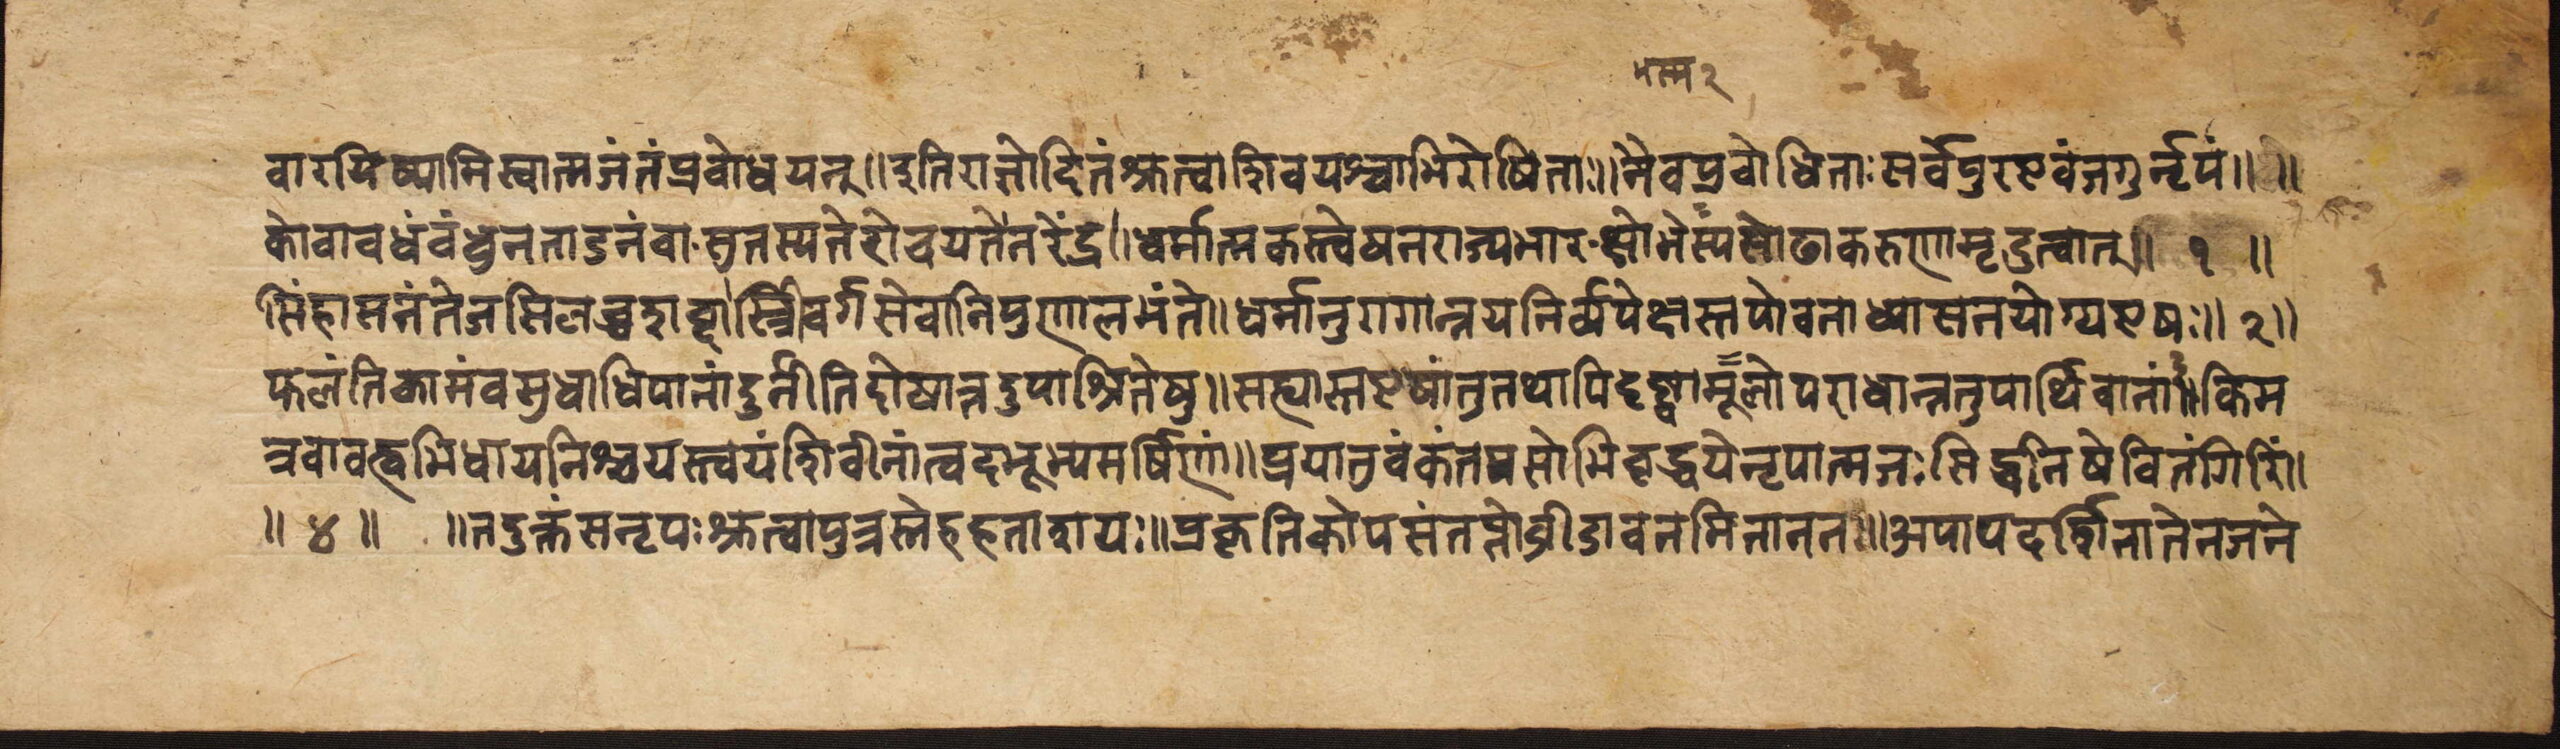 वारयिष्यामि स्वात्मजं तं प्रबोधयन्॥ इति राज्ञोदितं श्रुत्वा शिवयश्चाभिरोषिताः॥ नैव प्रबोधिताः सर्वे पुरएवं जगुर्नृपं॥ ॥
को वा वधं बंधुनताडनं वा सुतस्य ते रोचयते नरेंद्र॥ धर्मात्मकस्त्वेष न राज्यभार क्षोभस्य सोढा करुणामृदुत्वात्॥ १ ॥
सिंहासनं तेजसि लब्धशब्दास्त्रिवर्गसेवानिपुणा लभंते॥ धर्मानुरागान्नयनिर्व्यपेक्षस्तपोवनाध्यासनयोग्य एषः॥ २॥
फलंति कामं वसुधाधिपानां दुर्नीतिदोषास्तदुपाश्रितेषु॥ सह्यास्त एषां तु तथापि दृष्टा मूलोपराधान्नतु पार्थिवानां॥ किम
त्र वा वह्वभिधाय निश्चयस्त्वयं शिवीनां त्वदभूत्यमर्षिणां॥ प्रयातु वंकं तपसोभिवृद्धये नृपात्मजः सिद्धनिषेवितं गिरिं॥
॥ ४ ॥ ॥ तदुक्तं स नृपः श्रुत्वा पुत्रस्नेहहताशयः॥ प्रकृतिकोपसंतप्तो व्रीडावनमिताननः॥ अपायदर्शिना तेन जने